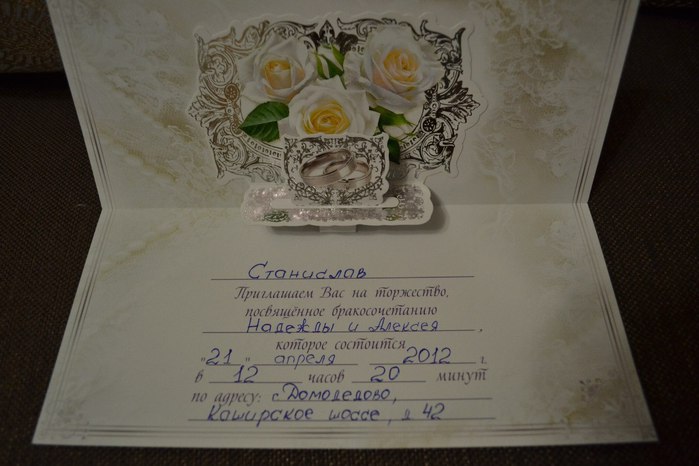 Станислав
Приглашаем Вас на торжество,
посвящённое бракосочетанию
Надежды и Алексея,
которое состоится
"21" апреля 2012 г.
в 12 часов 20 минут
по адресу: г. Домодедово,
Каширское шоссе, д 42